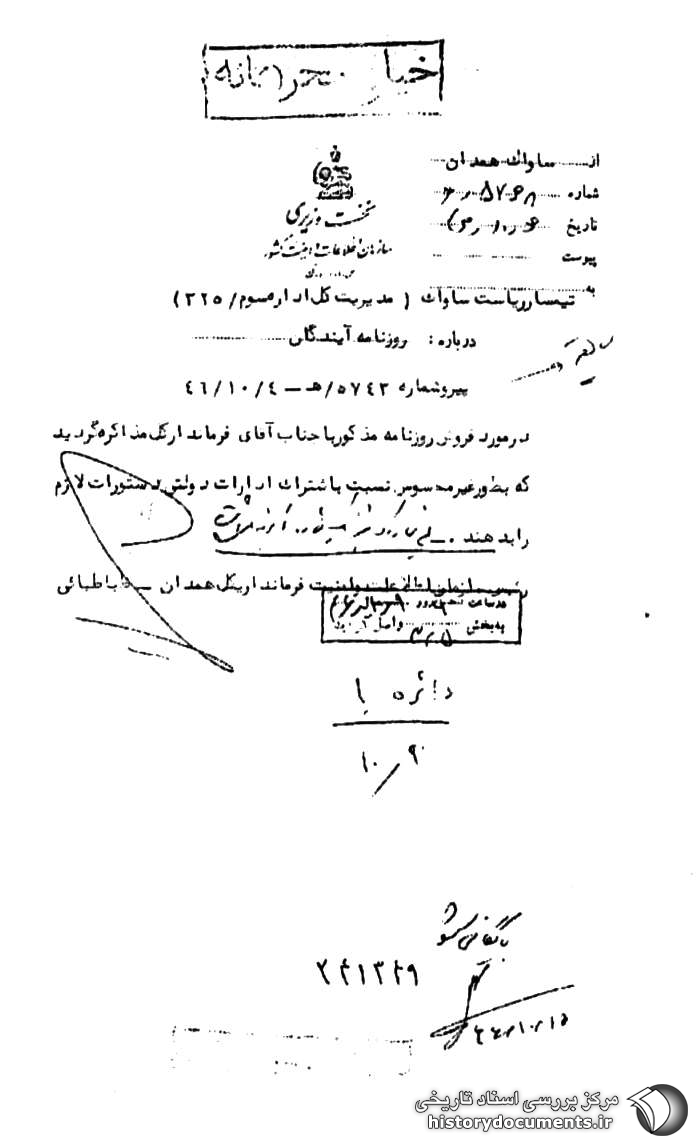 خیلی محرمانه
از ساواك همدان
شماره
تاریخ
پیوست
نخست وزیری
سازمان اطلاعات و امنیت کشور
س.ا.و.ا.ک
به
تیمسار ریاست ساواك ( مدیریت كل اداره سوم / ۳۲۵ )
درباره : روزنامه آیندگان
سابقه
پیرو شماره ۵۷۴۳ / هـ – ٤٦/١٠/٤
در مورد فروش روزنامه مذکور با جناب آقای فرماندار کل مذاکره گردید
که بطور غیر محسوس نسبت باشتراك ادارات دولتی دستورات لازم
را بدهند .
رئیس سازمان اطلاعات و امنیت فرمانداریکل همدان – طباطبائی
در ساعت روز
به بخش واصل گردید
دائره
۱۰/۹
بایگانی شود
۲۴۱۳۴۹
٤٦/١٠/١٥
مرکز بررسی اسناد تاریخی
historydocuments.ir